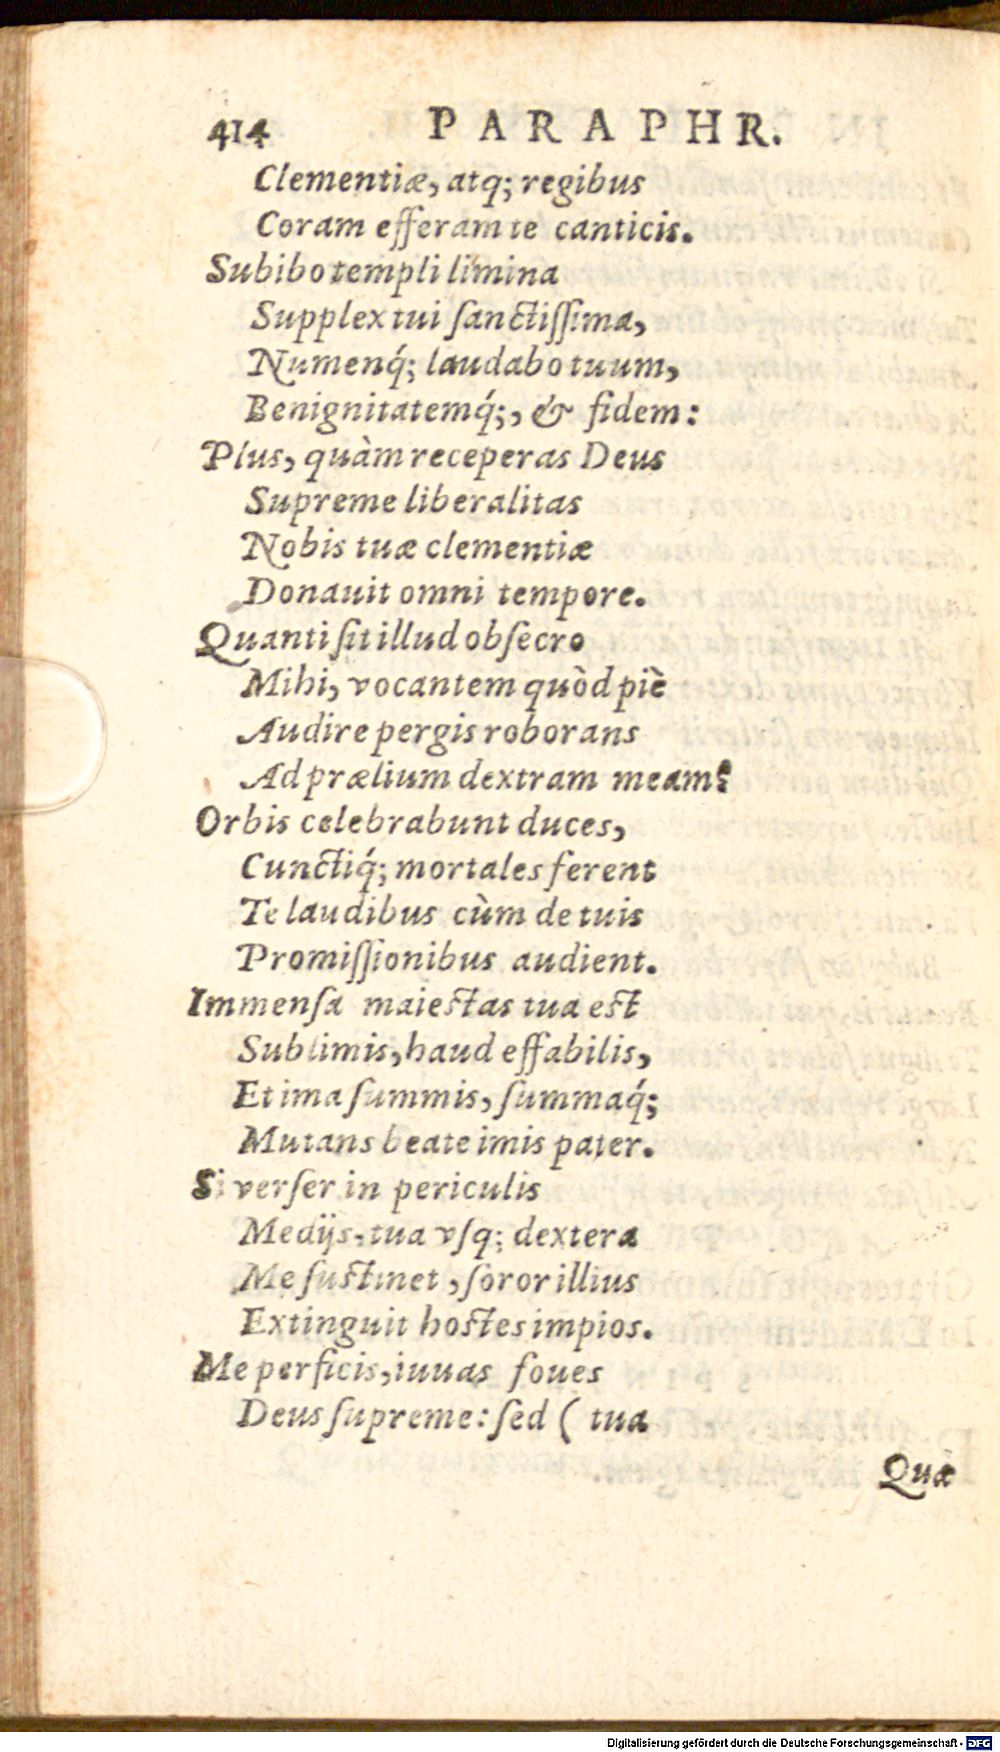 414 PARAPHR.
Clementiæ, atq; regibus
Coram efferam te canticis.
Subibo templi limina
Supplex tui ſanctiſſima,
Numenq́; laudabo tuum,
Benignitatemq́;, & fidem:
Plus, quàm receperas Deus
Supreme liberalitas
Nobis tuæ clementiæ
Donauit omni tempore.
Quanti ſit illud obſecro
Mihi, vocantem quòd piè
Audire pergis roborans
Ad prælium dextram meam?
Orbis celebrabunt duces,
Cunctiq́; mortales ferent
Te laudibus cùm de tuis
Promiſſionibus audient.
Immenſa maieſtas tua eſt
Sublimis, haud effabilis,
Et ima ſummis, ſummaq́;
Mutans beate imis pater.
Si verſer in periculis
Medijs, tua vſq; dextera
Me ſuſtinet, ſoror illius
Extinguit hoſtes impios.
Me perficis, iuuas foues
Deus ſupreme: ſed ( tua
Quæ
Digitalisierung gefördert durch die Deutsche Forschungsgemeinschaft - DFG